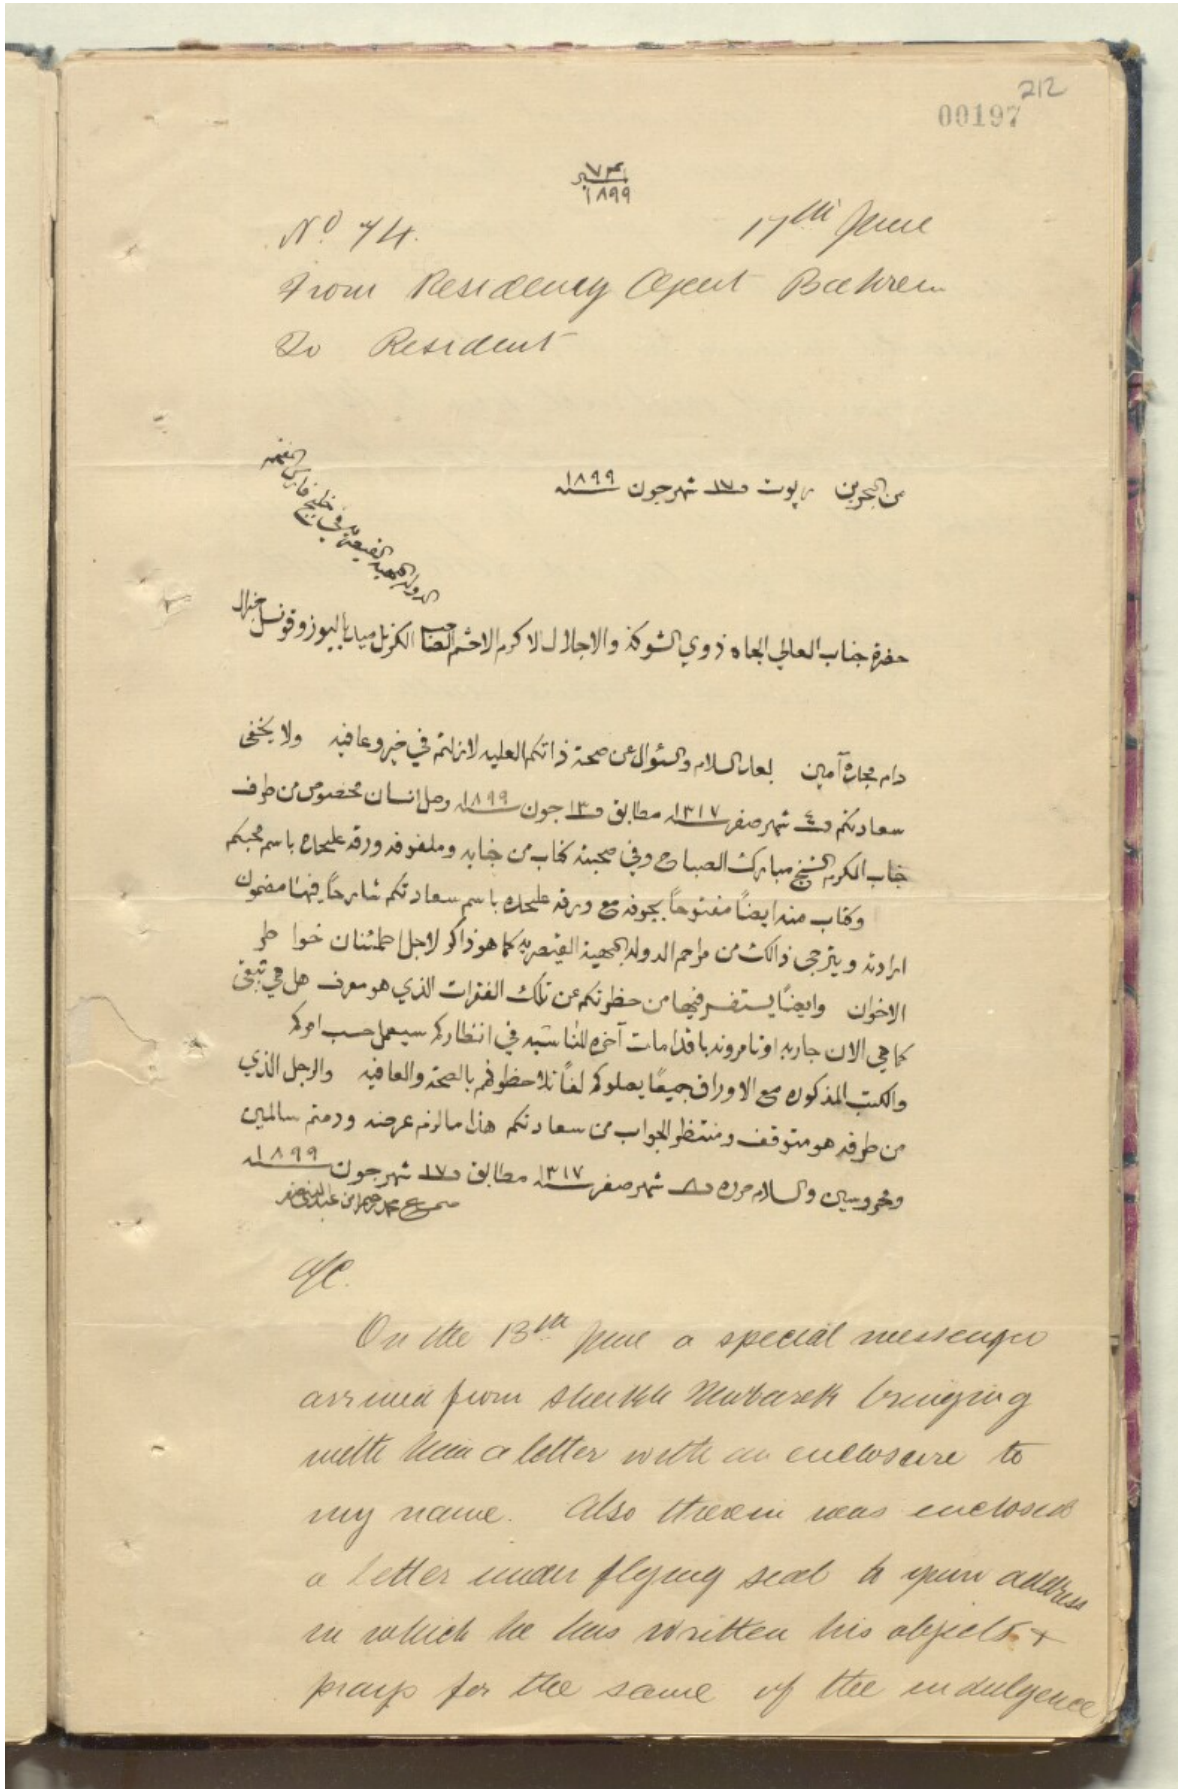 212
00197
نمبر ٧٤
١٨٩٩
No 74. 17th June
From Residency Agent Bahrein
To Resident
من البحرين ربوت م١٧ شهر جون سنه ١٨٩٩
الدوله البهيه القيصريه في خليج فارس
حضرة جناب العالي الجاه ذوي الشوكة والاجلال الاكرم الاحشم الصاحب الكرنل ميد باليوز وقونسل جنرال
دام مجده آمين بعد السلام والسئوال عن صحة ذاتكم العليه لازلتم في خير وعافيه ولا يخفى
سعادتكم م٤ شهر صفر سنه ١٣١٧ مطابق م١٣ جون سنه ١٨٩٩ وصل انسان مخصوص من طرف
جناب الكرم الشيخ مبارك الصباح وفي صحبته كتاب من جنابه وملفوفه ورقه عليحده باسم محبكم
وكتاب منه ايضاً مفتوحاً بجوفه مع ورقه عليحده باسم سعادتكم شارحاً فيها مضمون
ارادته ويترجى ذالك من مراحم الدوله البهية القيصريه كما هو ذاكر لاجل اطمئنان خواطر
الاخوان وايضاً يستفسر فيها من حظرتكم عن تلك الفقرات الذي هو معرف هل هي تبقى
كما هي الان جاريه او تامرونه باقدامات آخره للمناسبه في انتظاركم سيعمل حسب امركم
والكتب المذكوره مع الاوراق جميعاً يصلوكم لفاً تلاحظوهم بالصحة والعافيه والرجل الذي
من طرفه هو متوقف ومنتظر الجواب من سعادتكم هذا ما لزم عرضه ودمتم سالمين
ومحروسين والسلام حرره م٨ شهر صفر سنه ١٣١٧ مطابق م١٧ شهر جون سنه ١٨٩٩
محمد رحيم ابن عبدالنبي صفر
A/C.
On the 13th June a special messenger
arrived from Sheikh Mubarek bringing
with him a letter with an enclosure to
my name. Also therein was enclosed
a letter under flying seal to your address
in which he has written his objects &
prays for the same of the indulgence